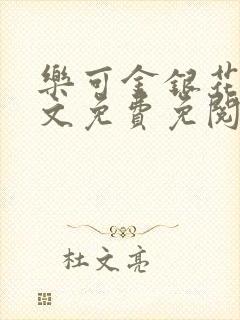 樂可金銀花
文免費免閱
杜文亮